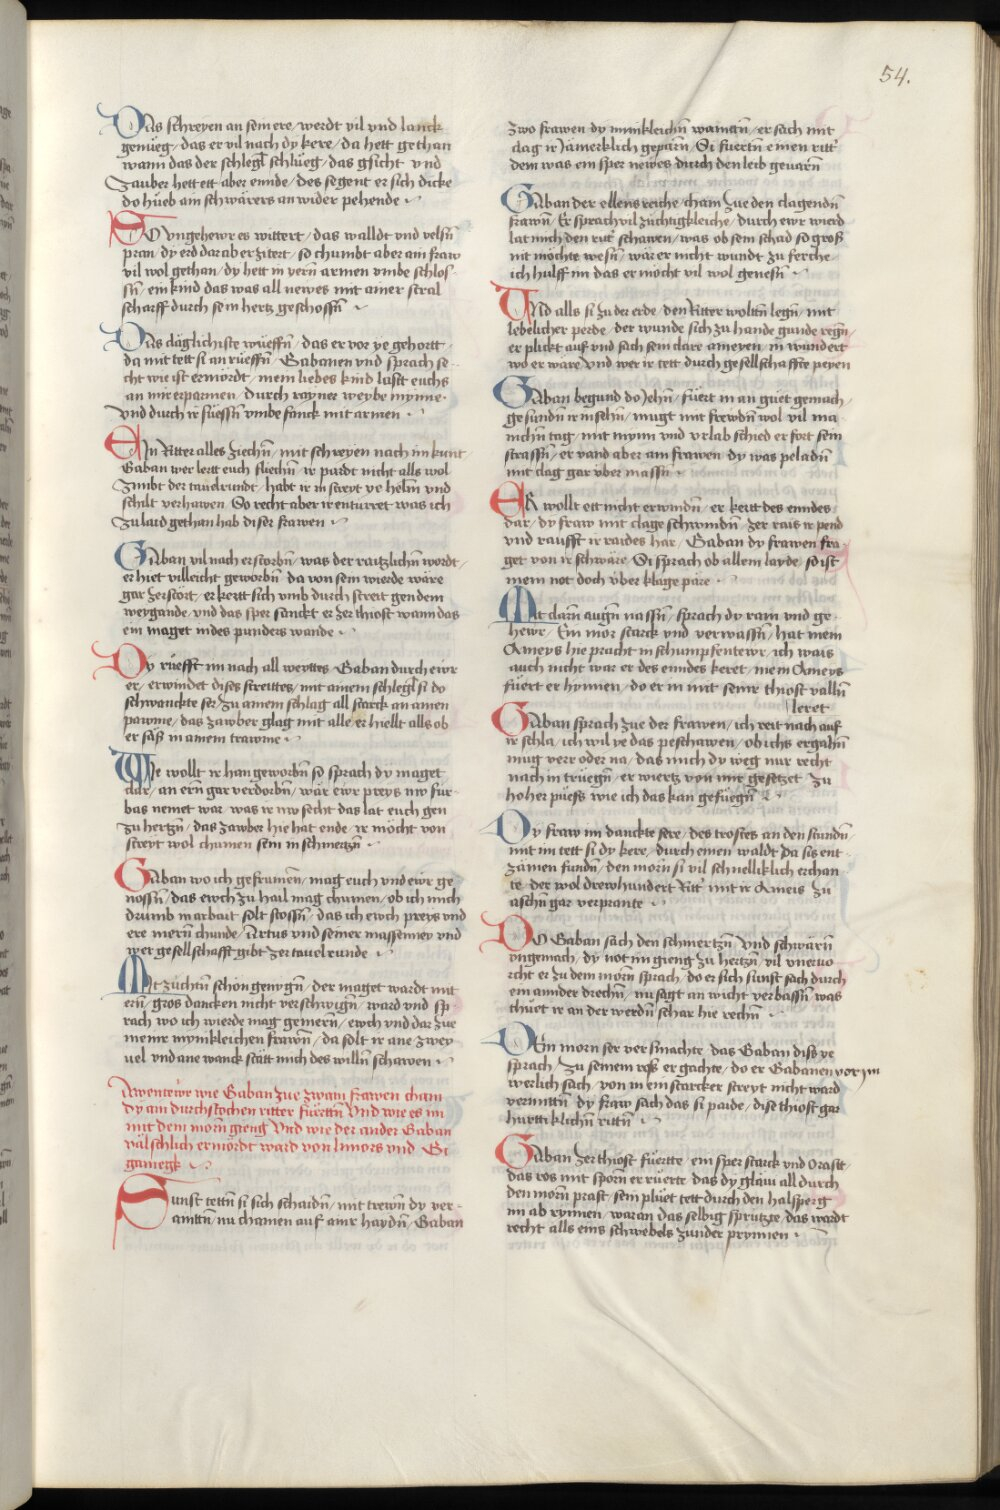 54.
Das schreyen an sein ere / werdt vil vnd lanck
genueg / das er vil nach dy kere / da hett gethan
wann das der schlegl schlueg / das gsicht vnd
Zauber hett ett aber ennde / des segent er sich dicke
do hueb am schwärers an wider pehende
SO vngehewr es wittert / das walldt vnd velsn̄
pran / dy erd darab er zitert / so chumbt aber am fraw
vil wol gethan / dy hett in yern̄ armen vmbe schlos¬
sn̄ ein kind das was all newes mit ainer stral
scharff durch sein hertz geschossn̄
Das cläglichiste wüeffn̄ / das er vor ye gehortt
da mit tett si an rüeffn̄ Gabanen vnd sprach se¬
cht wie ist ermördt / mein liebes kind lastt euchs
an mir erparmen / durch rayner weybe mynne
vnd durch ir süessn̄ vmbe fanck mit armen
Ein Ritter alles ziechn̄ / mit schreyen nach im kumt
Gaban wer lertt euch fliechn̄ ir pardt nicht alls wol
Zimbt der tauelrundt / habt ir in streyt ye helm vnd
schilt verhawen So recht aber ir enturret was ich
zu laid gethan hab diser frawen
Gaban vil nach erstorbn̄ / was der raitzlichn̄ wordt
er hiet villeicht geworbn̄ da von sein wierde wäre
gar zerstört / er kertt sich vmb durch streit gen dem
weygande / vnd das sper sanckt er zer thiost wann das
ein maget in des punders wande
Dy rüefft im nach all weyttes Gaban durch eiwr
er / erwindet dises streittes / mit ainem schlegl si do
schwanckte ser / zu ainem schlag all starck an ainen
pawme / das zawber glag mit alle / er hiellt alls ob
er saß in ainem trawme
Wie wollt ir han geworbn̄ so sprach dy maget
clar / an ern̄ gar verdorbn̄ / wär eiwr preys nw für¬
bas nemet war was ir nw secht das lat euch gen
zu hertzn̄ / das zawber hie hat ende / ir möcht von
streyt wol chumen sein in schmertzn̄
Gaban wo ich gefrumen / mag euch vnd eiwr ge¬
nossn̄ / das ewch zu hail mag chumen / ob ich mich
drumb in arbait solt stossn̄ / das ich ewch preys vnd
ere mern̄ chunde / Artus vnd seiner massenney vnd
wer gesellschafft gibt zer tauelrunde
Mit züchtn̄ schon genygn̄ / der maget wardt mit
ern̄ / gros dancken nicht verschwign̄ / ward vnd sp¬
rach wo ich wierde mag gemern̄ / ewch vnd dar zue
meinr mynikleichen frawn̄ / da solt ir ane zwey¬
uel vnd ane wanck stätt mich des willn̄ schawen
Awentewr wie Gaban zue zwain frawen cham
dy am durchstochen ritter füertn̄ Vnd wie es im
mit dem morn̄ gieng Vnd wie der ander Gaban
välschlich ermördt ward von limors vnd Gi
gamegk
Sunst tettn̄ si sich schaidn̄ / mit trewn̄ dy ver¬
aintn̄ / nu chamen auf ainr haydn̄ / Gaban
zwo frawen dy minikleichn̄ warnn̄ / er sach mit
clag ir Jämerklich geparn̄ / Si fuertn̄ einen ritt
dem was ein sper newes durch den leib geuarn̄
Gaban der ellens reiche / cham zue den clagendn̄
frawn̄ Er sprach vil züchtigkleiche / durch ewr wierd
lat mich den rit schawen / was ob sein schad so groß
nit möchte wesn̄ / wär er nicht wundt zu ferche
ich hulff im das er möcht vil wol genesn̄
Vnd alls si zu der erde / den Ritter woltn̄ legn̄ / mit
lebelicher perde / der wunde sich zu hande gunde regn̄
er plickt auf vnd sach sein clare ameyen / in wundert
wo er wäre / Vnd wer ir tett durch gesellschaffte peyen
Gaban begund do Jehn̄ / füert in an guet gemach
gesundn̄ ir in sehn̄ / mugt mit frewdn̄ wol vil ma¬
nichn̄ tag / mit mynn vnd vrlab schied er fort sein
strassn̄ / er vand aber am frawen dy was peladn̄
mit clag gar vber massn̄
ER wollt ett nicht erwindn̄ / er kertt des enndes
dar / dy fraw mit clage schwindn̄ / zer rais ir pend
vnd raufft ir raides har / Gaban dy frawen fra¬
get von ir schwäre Si sprach ob allem layde / so ist
mein not doch vber klage pare
Mit clarn̄ augn̄ nassn̄ / sprach dy rain vnd ge¬
hewr / Ein mor starck vnd verwassn̄ / hat mein
Ameys hie pracht in schumpfentewr / ich wais
auch nicht war er des enndes keret / mein Ameys
füert er hynnen / do er in mit seinr thiost valln̄
leret
Gaban sprach zue der frawen / ich reit nach auf
ir schla / ich wil ye das peschawen / ob ichs ergahn̄
mug verr oder na / das mich dy weg nur recht
nach in trüegn̄ / er wiertz von mir gesetzet zu
hoher puess wie ich das kan gefüegn̄
Dy fraw im danckte sere / des trostes an den stundn̄
mit im tett si dy kere / durch einen waldt da sis ent¬
zämen fundn̄ / den morn̄ si vil schnelliklich erchan¬
te / der wol drewhundert Ritt mit ir Ameis zu
aschn̄ gar verprante
DO Gaban sach den schmertzn̄ Vnd schwärn̄
vngemach / dy not im gieng zu hertzn̄ / vil vneruo¬
rcht er zu dem morn̄ sprach / do er sich sunst sach durch
ein annder drechn̄ / nu sagt an wicht verbassn̄ / was
thüet ir an der werdn̄ schar hie rechn̄
DEm morn ser versmachte / das Gaban diß ye
sprach / zu seinem roß er gachte / do er Gabanen vor im
werlich sach / von in ein starcker streyt nicht ward
vermittn̄ / dy fraw sach das si paide / dise thiost gar
hurttiklichn̄ rittn̄
Gaban zer thiost füertte / ein sper starck vnd Vrastt
das ros mit sporn er ruerte / das dy gläui all durch
den morn̄ prast / sein pluet tett durch den halsperg
im ab rynnen / waran das selbig sprutzte / das wardt
recht alls eins schwebels zunder prynnen